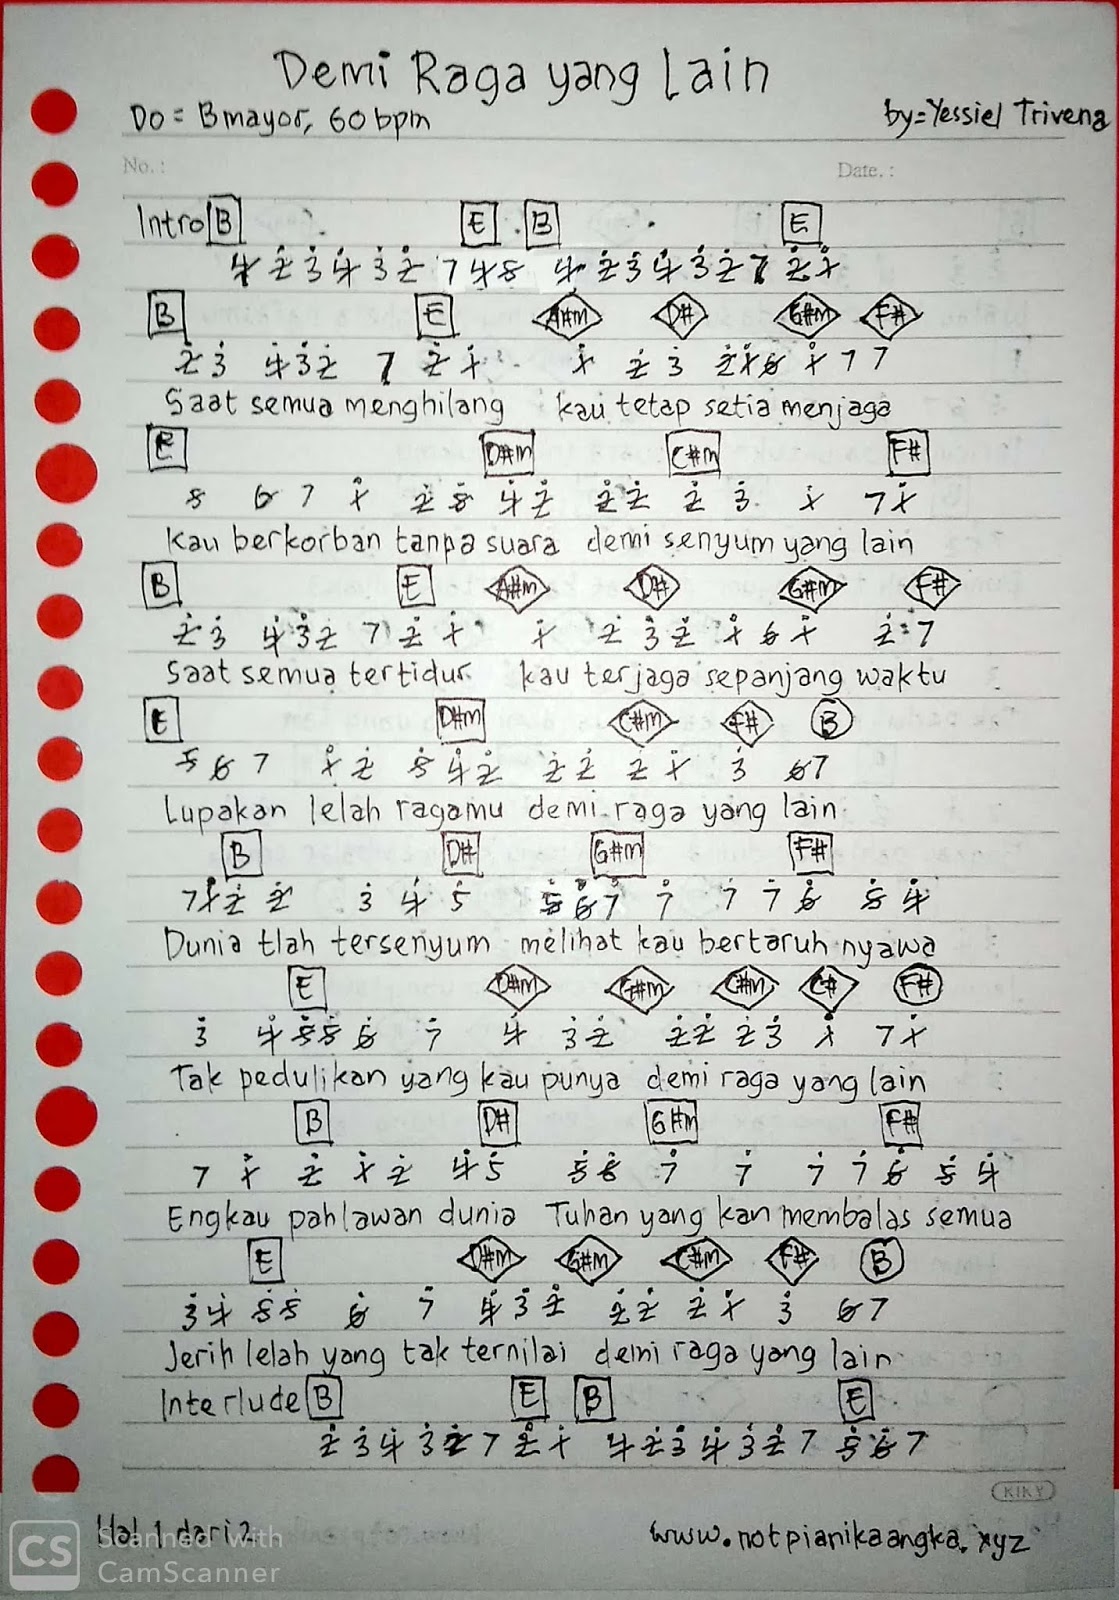 Demi Raga yang Lain
Do = B mayor, 60 bpm by=Yessiel Trivena
No. : Date. :
Intro B E B E
4 2 3 4 3 2 7 4 5 4 2 3 4 3 2 7 2 1
B E A#m D# G#m F#
2 3 4 3 2 7 2 1 1 2 3 2 1 6 1 7 7
Saat semua menghilang kau tetap setia menjaga
E D#m C#m F#
5 6 7 1 2 5 4 2 2 2 2 3 1 7 1
Kau berkorban tanpa suara demi senyum yang lain
B E A#m D# G#m F#
2 3 4 3 2 7 2 1 1 2 3 2 1 6 1 2 7
Saat semua tertidur kau terjaga sepanjang waktu
E D#m C#m F# B
5 6 7 1 2 5 4 2 2 2 2 1 3 6 7
Lupakan lelah ragamu demi raga yang lain
B D# G#m F#
7 1 2 2 3 4 5 5 6 7 7 7 7 6 5 4
Dunia tlah tersenyum melihat kau bertaruh nyawa
E D#m G#m C#m C# F#
3 4 5 5 6 7 4 3 2 2 2 2 3 1 7 1
Tak pedulikan yang kau punya demi raga yang lain
B D# G#m F#
7 1 2 1 2 4 5 5 6 7 7 7 7 6 5 4
Engkau pahlawan dunia Tuhan yang kan membalas semua
E D#m G#m C#m F# B
3 4 5 5 6 7 4 3 2 2 2 2 1 3 6 7
Jerih lelah yang tak ternilai demi raga yang lain
Interlude B E B E
2 3 4 3 2 7 2 1 4 2 3 4 3 2 7 5 6 7
KIKY
Hal 1 dari 2 www.notpianikaangka.xyz
CS Scanned with
CamScanner